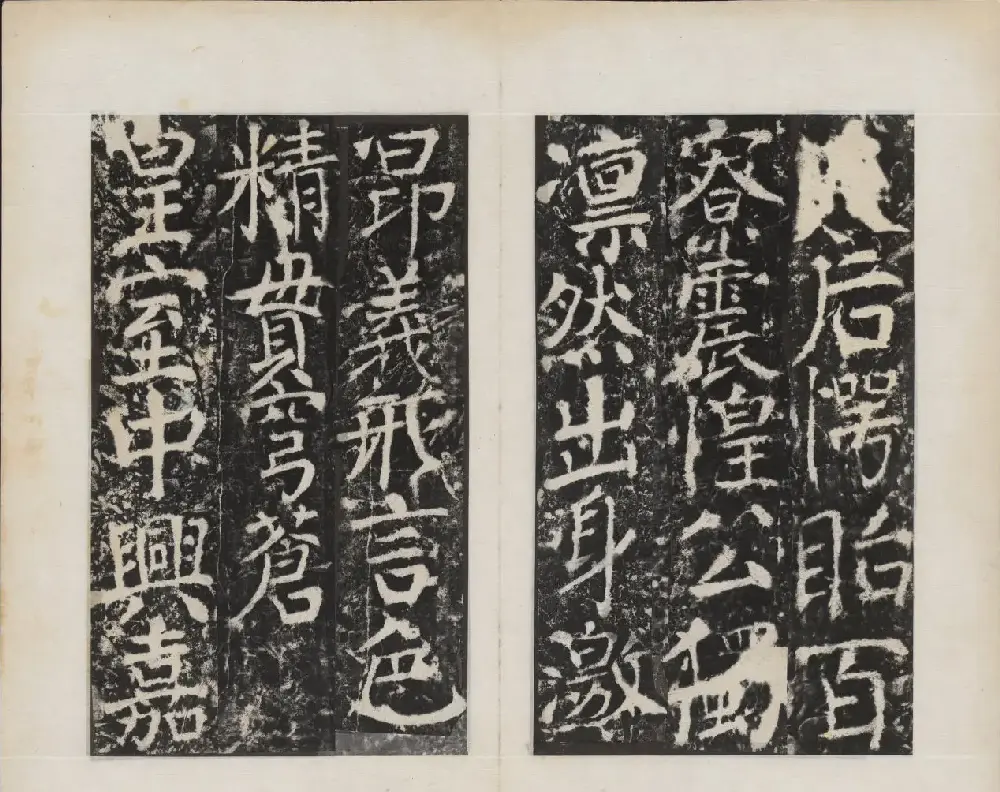 后愕眙百
寮震惶公獨
凛然出身激
昂義形言色
精貫穹蒼
皇室中興嘉